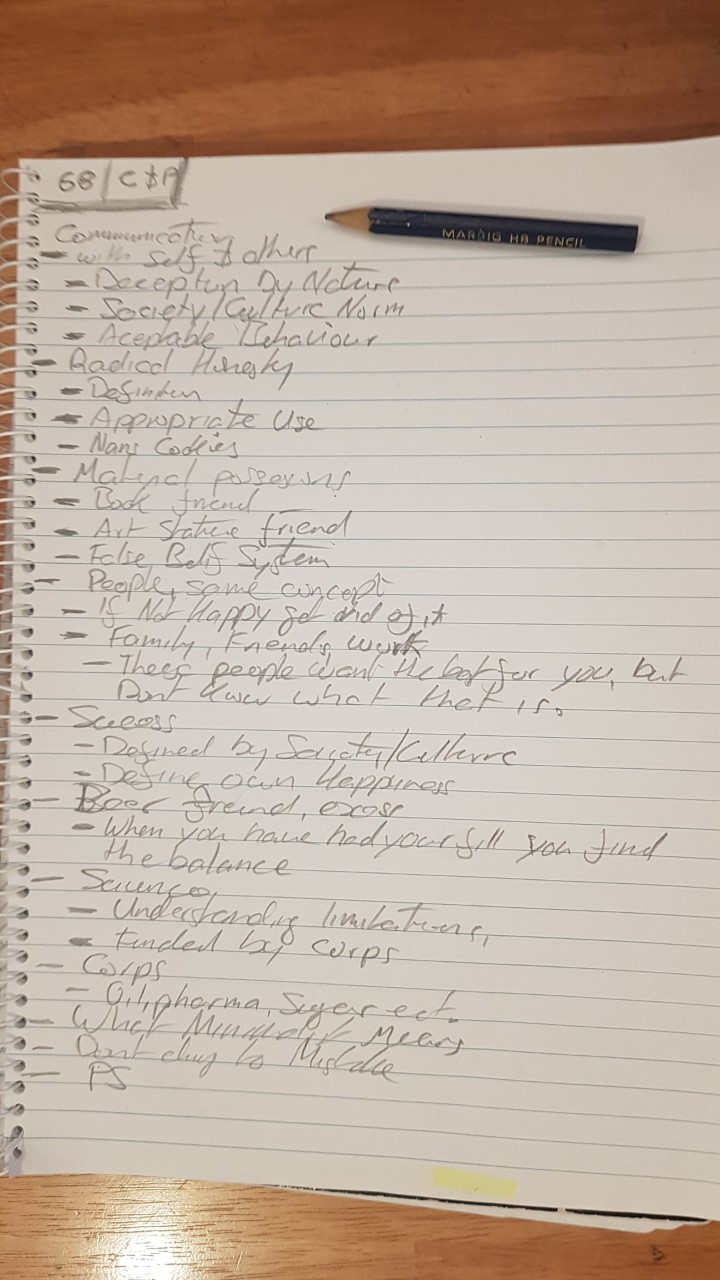 68/C&A
MARBIG HB PENCIL
Communication
- with Self & others
- Deception By Nature
- Society/Culture Norm
- Aceptable Behaviour
- Radical Honesty
- Definition
- Appropriate Use
- Nans Cookies
- Material possessions
- Book friend
- Art Statue friend
- False Belif System
- People, same concept
- If Not Happy get rid of it
- Family, Friends, work
- Thees people want the best for you, but
Dont know what that is.
- Sucess
- Defined by Society/Culture
- Define own Happiness
- Beer freind, excess
- When you have had your fill you find
the balance
- Science,
- Understanding limitations,
- Funded by corps
- Corps
- Oil, pharma, Sugar ect.
- What Minimalist Means
- Dont cling to Mistake
- PS